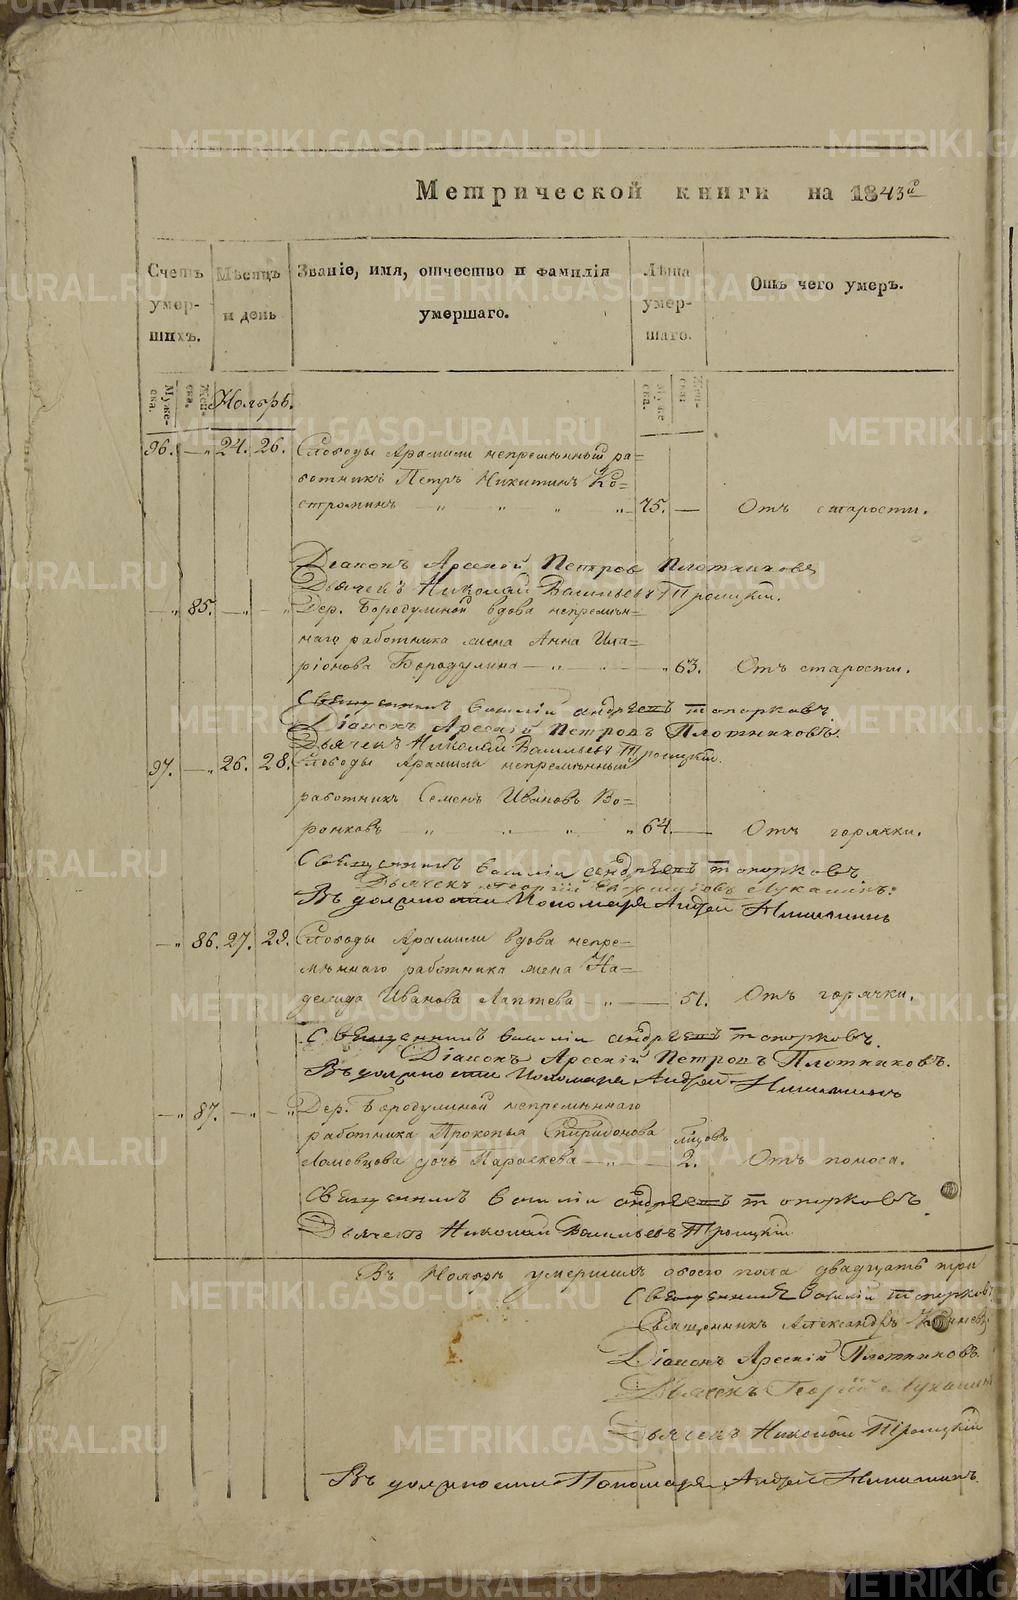 Метрической книги на 1843й
Счетъ умер- шихъ.
Мѣсяцъ и день
Званіе, имя, отчество и фамилія умершаго.
Лѣта умер- шаго.
Отъ чего умеръ.
Муже- ска.
Жен- ска.
Ноябрь.
Муже ска.
Жен- ска.
96. — „ 24. 26. Слободы Арамили непремѣнный ра=
ботникъ Петръ Никитинъ Ко=
строминъ — „ „ „ „ 75. — Отъ старости.
Діаконъ Арсеній Петровъ Плотниковъ
Дьячекъ Николай Васильевъ Троицкій.
— „ 85. — „ — „ Дер. Бородулиной вдова непремѣн=
наго работника жена Анна Ила=
ріонова Бородулина — „ — „ 63. Отъ старости.
Священникъ Василій Андреевъ Топорковъ.
Діаконъ Арсеній Петровъ Плотниковъ.
Дьячекъ Николай Васильевъ Троицкій.
97. — „ 26. 28. Слободы Арамили непремѣнный
работникъ Семенъ Ивановъ Во=
ронковъ „ „ „ „ 64. — Отъ горячки.
Священникъ Василій Андреевъ Топорковъ.
Дьячекъ Георгій Лукашинъ.
Въ должности Пономаря Андрей Никитинъ
— „ 86. 27. 29. Слободы Арамили вдова непре=
мѣннаго работника жена На=
дежда Иванова Лаптева — „ — 51. Отъ горячки.
Священникъ Василій Андреевъ Топорковъ.
Діаконъ Арсеній Петровъ Плотниковъ.
Въ должности Пономаря Андрей Никитинъ
— „ 87. — „ — „ Дер. Бородулиной непремѣннаго
работника Прокопья Спиридонова
Ломовцова дочь Параскева — „ — 2. Отъ поноса.
Священникъ Василій Андреевъ Топорковъ.
Дьячекъ Николай Васильевъ Троицкій
Въ Ноябрѣ умершихъ обоего пола двадцать три
Священникъ Василій Топорковъ
Священникъ Александръ
Діаконъ Арсеній Плотниковъ.
Дьячекъ Георгій Лукашинъ
Дьячекъ Николай Троицкій
Въ должности Пономаря Андрей Никитинъ.
METRIKI.GASO-URAL.RU